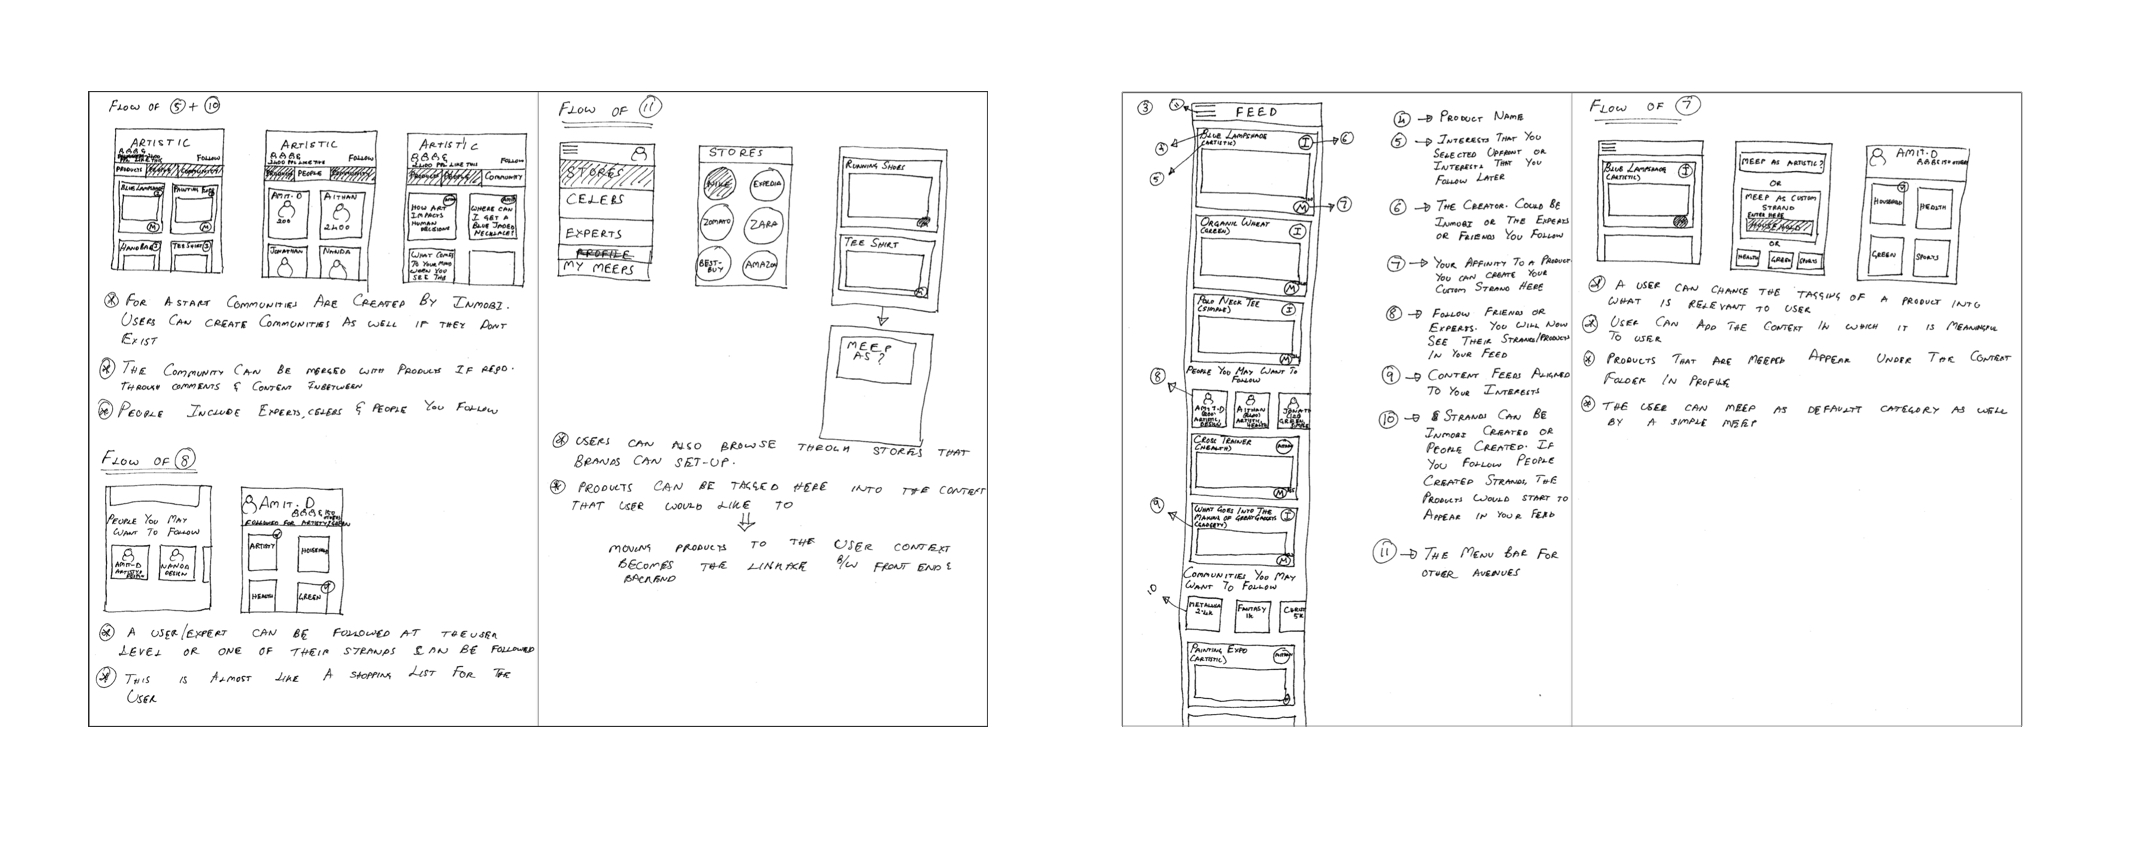 FLOW OF 5 + 10
ARTISTIC
FOLLOW
PRODUCTS PEOPLE COMMUNITY
BLUE LAMPSHADE
M
M
HANDBAG
TEE SHIRT
ARTISTIC
2400 PPL LIKE THIS
FOLLOW
PRODUCT PEOPLE COMMUNITY
AMIT-D
200
AITHAN
2400
JONATHAN
NANDA
ARTISTIC
2400 PPL LIKE THIS
FOLLOW
PRODUCT PEOPLE COMMUNITY
HOW ART
IMPACTS
HUMAN
DECISIONS
WHERE CAN
I GET A
BLUE JADED
NECKLACE?
WHAT COMES
TO YOUR MIND
WHEN YOU
SEE THE
* FOR A START COMMUNITIES ARE CREATED BY INMOBI.
USERS CAN CREATE COMMUNITIES AS WELL IF THEY DONT
EXIST
* THE COMMUNITY CAN BE MERGED WITH PRODUCTS IF REQD.
THROUGH COMMENTS & CONTENT INBETWEEN
* PEOPLE INCLUDE EXPERTS, CELEBS & PEOPLE YOU FOLLOW
FLOW OF 8
PEOPLE YOU MAY
WANT TO FOLLOW
AMIT-D
ARTISTIC,
DESIGN
NANDA
DESIGN
AMIT.D
FOLLOWED FOR ARTISTIC/GREEN
ARTISTIC
HOUSEHOLD
HEALTH
GREEN
* A USER/EXPERT CAN BE FOLLOWED AT THE USER
LEVEL OR ONE OF THEIR STRANDS CAN BE FOLLOWED
* THIS IS ALMOST LIKE A SHOPPING LIST FOR THE
USER
FLOW OF 11
STORES
CELEBS
EXPERTS
PROFILE
MY MEEPS
STORES
NIKE
EXPEDIA
ZOMATO
ZARA
BEST-
BUY
AMAZON
RUNNING SHOES
TEE SHIRT
M
MEEP
AS?
* USERS CAN ALSO BROWSE THROUGH STORES THAT
BRANDS CAN SET-UP.
* PRODUCTS CAN BE TAGGED HERE INTO THE CONTEXT
THAT USER WOULD LIKE TO
MOVING PRODUCTS TO THE USER CONTEXT
BECOMES THE LINKAGE B/W FRONT END &
BACKEND
3
11
FEED
BLUE LAMPSHADE
(ARTISTIC)
I
6
4
5
M
7
ORGANIC WHEAT
(GREEN)
I
M
POLO NECK TEE
(SIMPLE)
I
M
PEOPLE YOU MAY WANT TO
FOLLOW
8
AMIT-D
ARTISTIC,
DESIGN
AITHAN
ARTISTIC,
HEALTH
CROSS TRAINER
(HEALTH)
M
9
WHAT GOES INTO THE
MAKING OF GREAT GADGETS
(GADGETY)
I
M
COMMUNITIES YOU MAY
WANT TO FOLLOW
10
METALLICA
2.4K
FANTASY
1K
5K
PAINTING EXPO
(ARTISTIC)
4 → PRODUCT NAME
5 → INTERESTS THAT YOU
SELECTED UPFRONT OR
INTERESTS THAT YOU
FOLLOW LATER
6 → THE CREATOR. COULD BE
INMOBI OR THE EXPERTS
OR FRIENDS YOU FOLLOW
7 → YOUR AFFINITY TO A PRODUCT
YOU CAN CREATE YOUR
CUSTOM STRAND HERE
8 → FOLLOW FRIENDS OR
EXPERTS. YOU WILL NOW
SEE THEIR STRANDS/PRODUCTS
IN YOUR FEED
9 → CONTENT FEEDS ALIGNED
TO YOUR INTERESTS
10 → STRANDS CAN BE
INMOBI CREATED OR
PEOPLE CREATED. IF
YOU FOLLOW PEOPLE
CREATED STRANDS, THE
PRODUCTS WOULD START TO
APPEAR IN YOUR FEED
11 → THE MENU BAR FOR
OTHER AVENUES
FLOW OF 7
BLUE LAMPSHADE
(ARTISTIC)
I
MEEP AS ARTISTIC?
OR
MEEP AS CUSTOM
STRAND
ENTER HERE
HOUSEHOLD
OR
HEALTH
GREEN
SPORTS
AMIT.D
HOUSEHOLD
HEALTH
GREEN
SPORTS
* A USER CAN CHANGE THE TAGGING OF A PRODUCT INTO
WHAT IS RELEVANT TO USER
* USER CAN ADD THE CONTEXT IN WHICH IT IS MEANINGFUL
TO USER
* PRODUCTS THAT ARE MEEPED APPEAR UNDER THE CONTEXT
FOLDER IN PROFILE
* THE USER CAN MEEP AS DEFAULT CATEGORY AS WELL
BY A SIMPLE MEEP